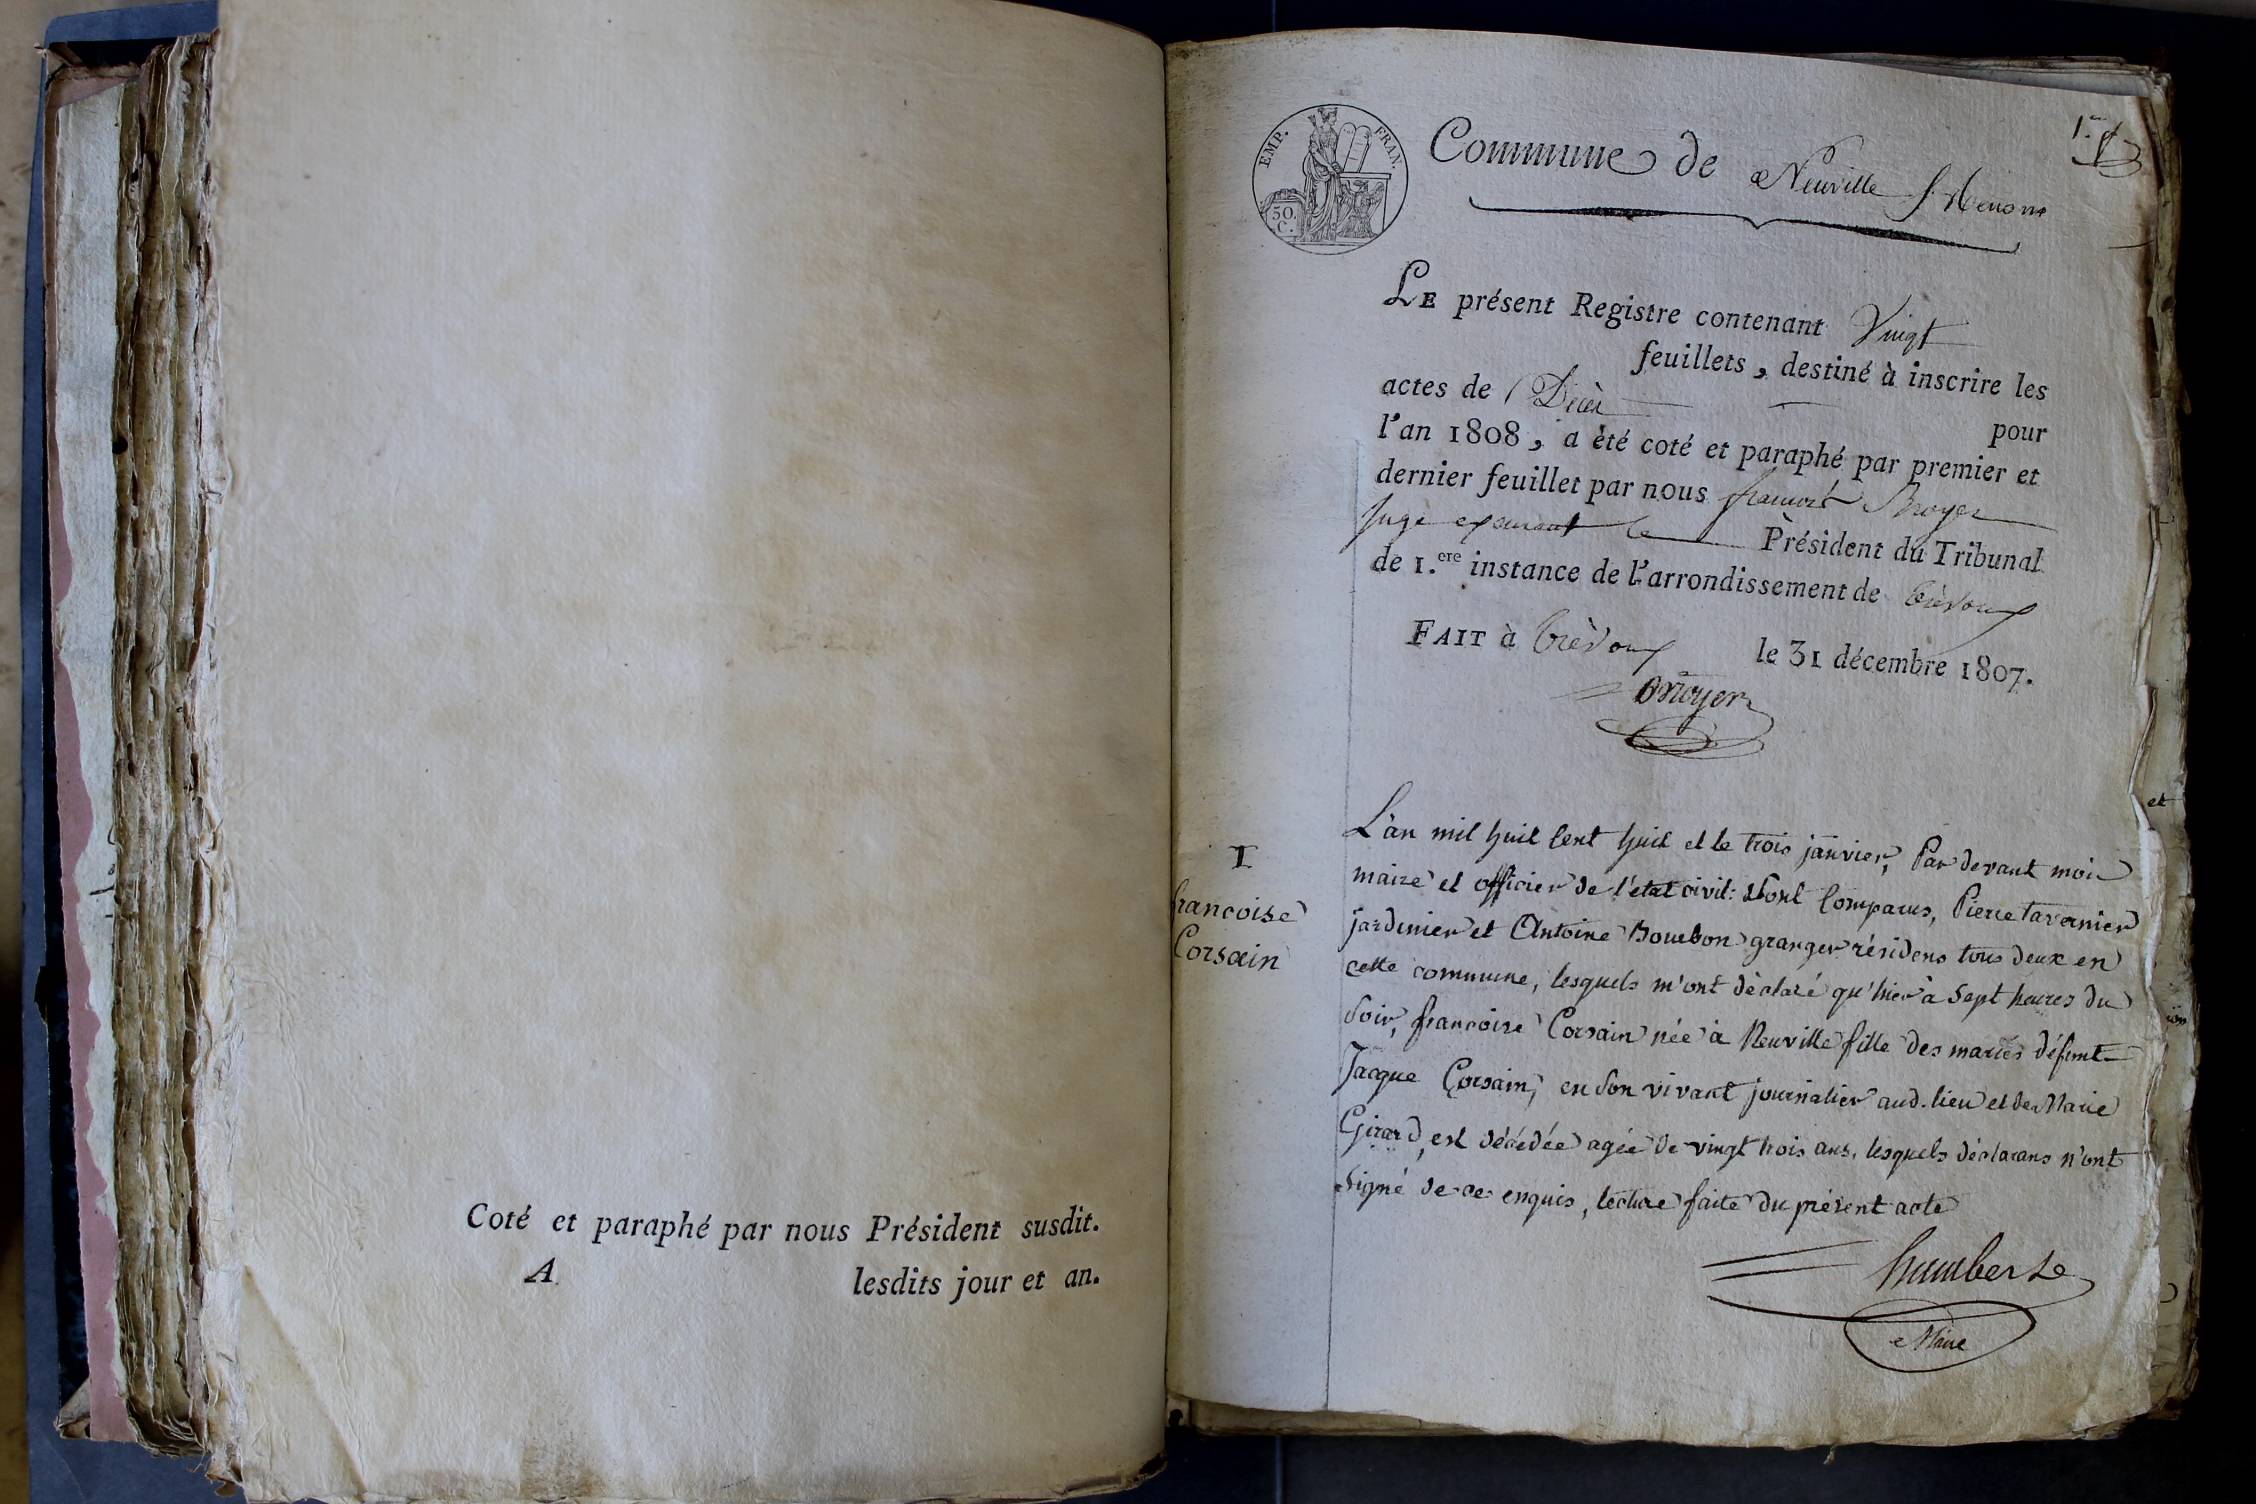 Coté et paraphé par nous Président susdit.
A lesdits jour et an.
EMP. FRAN.
50.
C.
Commune de Neuville s. Renom
1.er
LE présent Registre contenant Vingt
feuillets, destiné à inscrire les
actes de Décès pour
l'an 1808, a été coté et paraphé par premier et
dernier feuillet par nous francois Broyer
juge exerceant le Président du Tribunal
de 1.ere instance de l'arrondissement de trévoux
FAIT à trèvoux le 31 décembre 1807.
Broyer
1
francoise
Corsain
L'an mil huit cent huit et le trois janvier, Par devant moi
maire et officier de l'etat civil: sont Comparus, Pierre tavernier
jardinier et Antoine Bourbon granger résidens tous deux en
cette commune, lesquels m'ont déclaré qu'hier à Sept heures du
Soir, francoise Corsain née à Neuville fille des mariés défunt
Jacque Corsain, en Son vivant journalier aud. lieu et de Marie
Girard, est décédée agée de vingt trois ans, lesquels déclarans n'ont
Signé de ce enquis, lecture faite du présent acte
humbert
Maire
et